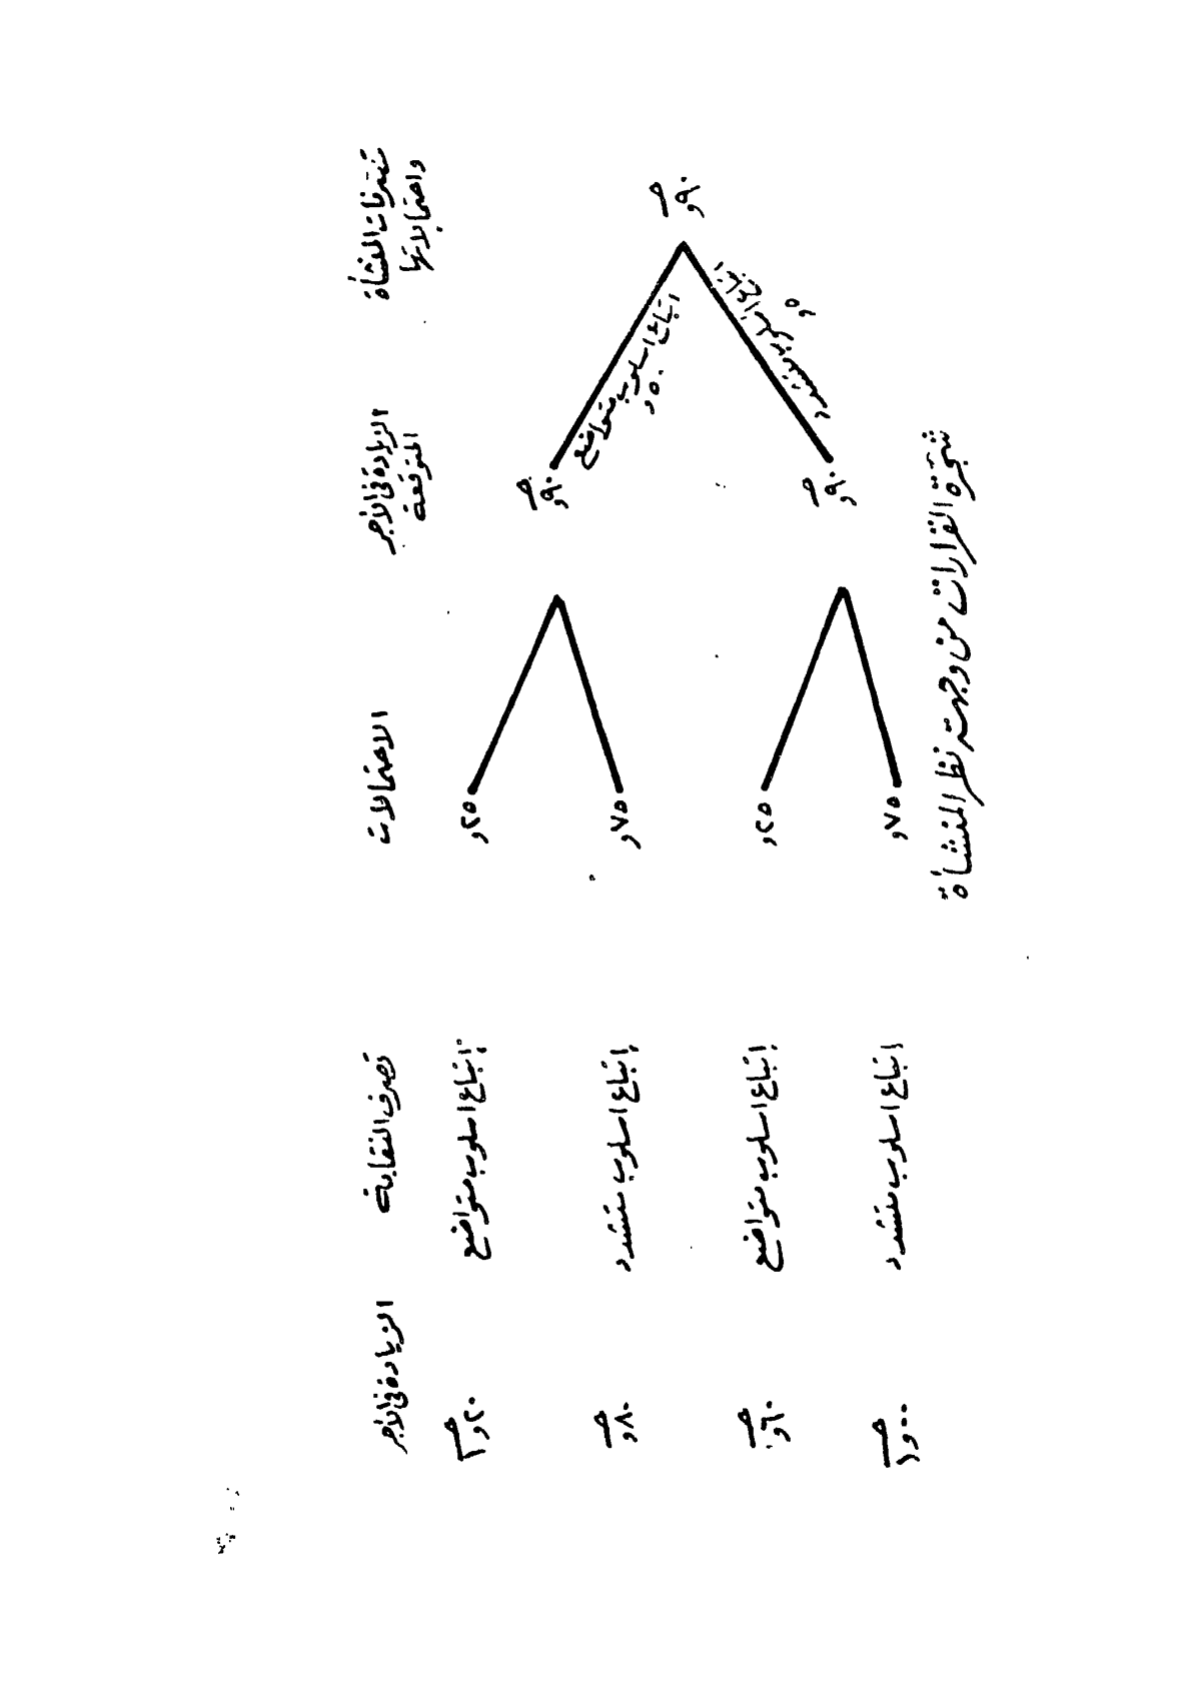 تصرفات المنشأة
واحتمالاتها
الزيادة فى الأجر
المتوقعة
الاحتمالات
تصرف النقابة
الزيادة فى الأجر
ح ٩٠و
اتباع اسلوب متواضع
٥٠و
٥و
ح ٩٠و
ح ٩٠و
٢٥و
٧٥و
٢٥و
٧٥و
إتباع اسلوب متواضع
إتباع اسلوب متشدد
إتباع اسلوب متواضع
اتباع اسلوب متشدد
ح ٢٠و١
ح ٨٠و
ح ٦٠و
ح ٠٠و١
شجرة القرارات من وجهة نظر المنشأة